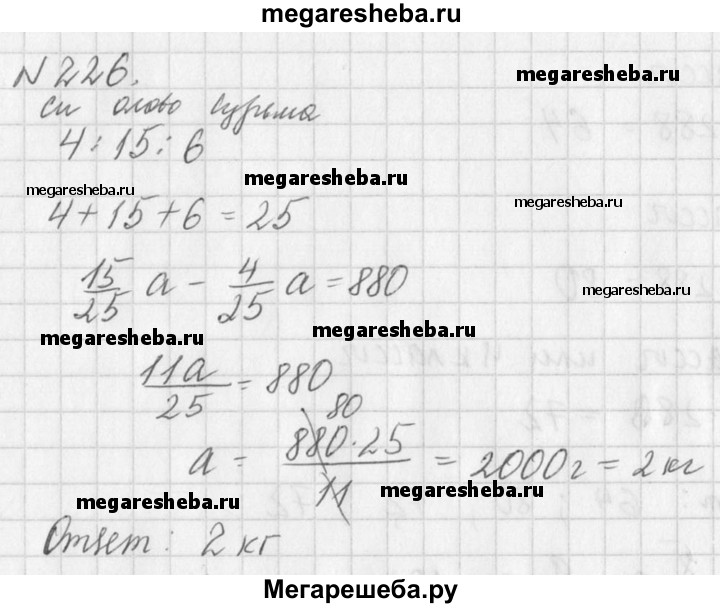 megaresheba.ru
N 226.
megaresheba.ru
си олово сурьма
4 : 15 : 6
megaresheba.ru
megaresheba.ru
megaresheba.ru
4 + 15 + 6 = 25
15/25 a - 4/25 a = 880
megaresheba.ru
megaresheba.ru
megaresheba.ru
11a/25 = 880
80
a = 880·25/11 = 2000г = 2 кг
megaresheba.ru
megaresheba.ru
Ответ: 2 кг
Мегарешеба.ру